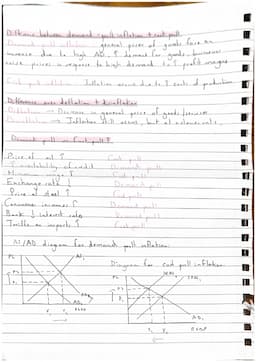 Difference between demand-pull inflation + cost pull
Demand pull inflation general prices of goods face an
increase due to high AD. ↑ demand for goods, businesses
raise prices in response to high demand to ↑ profit margins
Cost pull inflation Inflation occurs due to ↑ costs of production
Difference between deflation + disinflation
Deflation → Decrease in general price of goods/services
→ Inflation still occurs, but at a slower rate.
Demand pull or Cost pull?
Price of oil ↑ Cost pull
↑ availability of credit Demand pull
Minimum wage ↑ Cost pull
Exchange rate ↓ Demand pull
Price of steel ↑ Cost pull
Consumer incomes ↑ Demand pull
Bank ↓ interest rate Demand pull
Tariffs on imports ↑ Cost pull
AS/AD diagram for demand pull inflation:
Diagram for cost pull inflation: